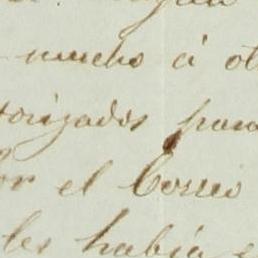 mucho á ot
torizados para
or el Correo
les había e